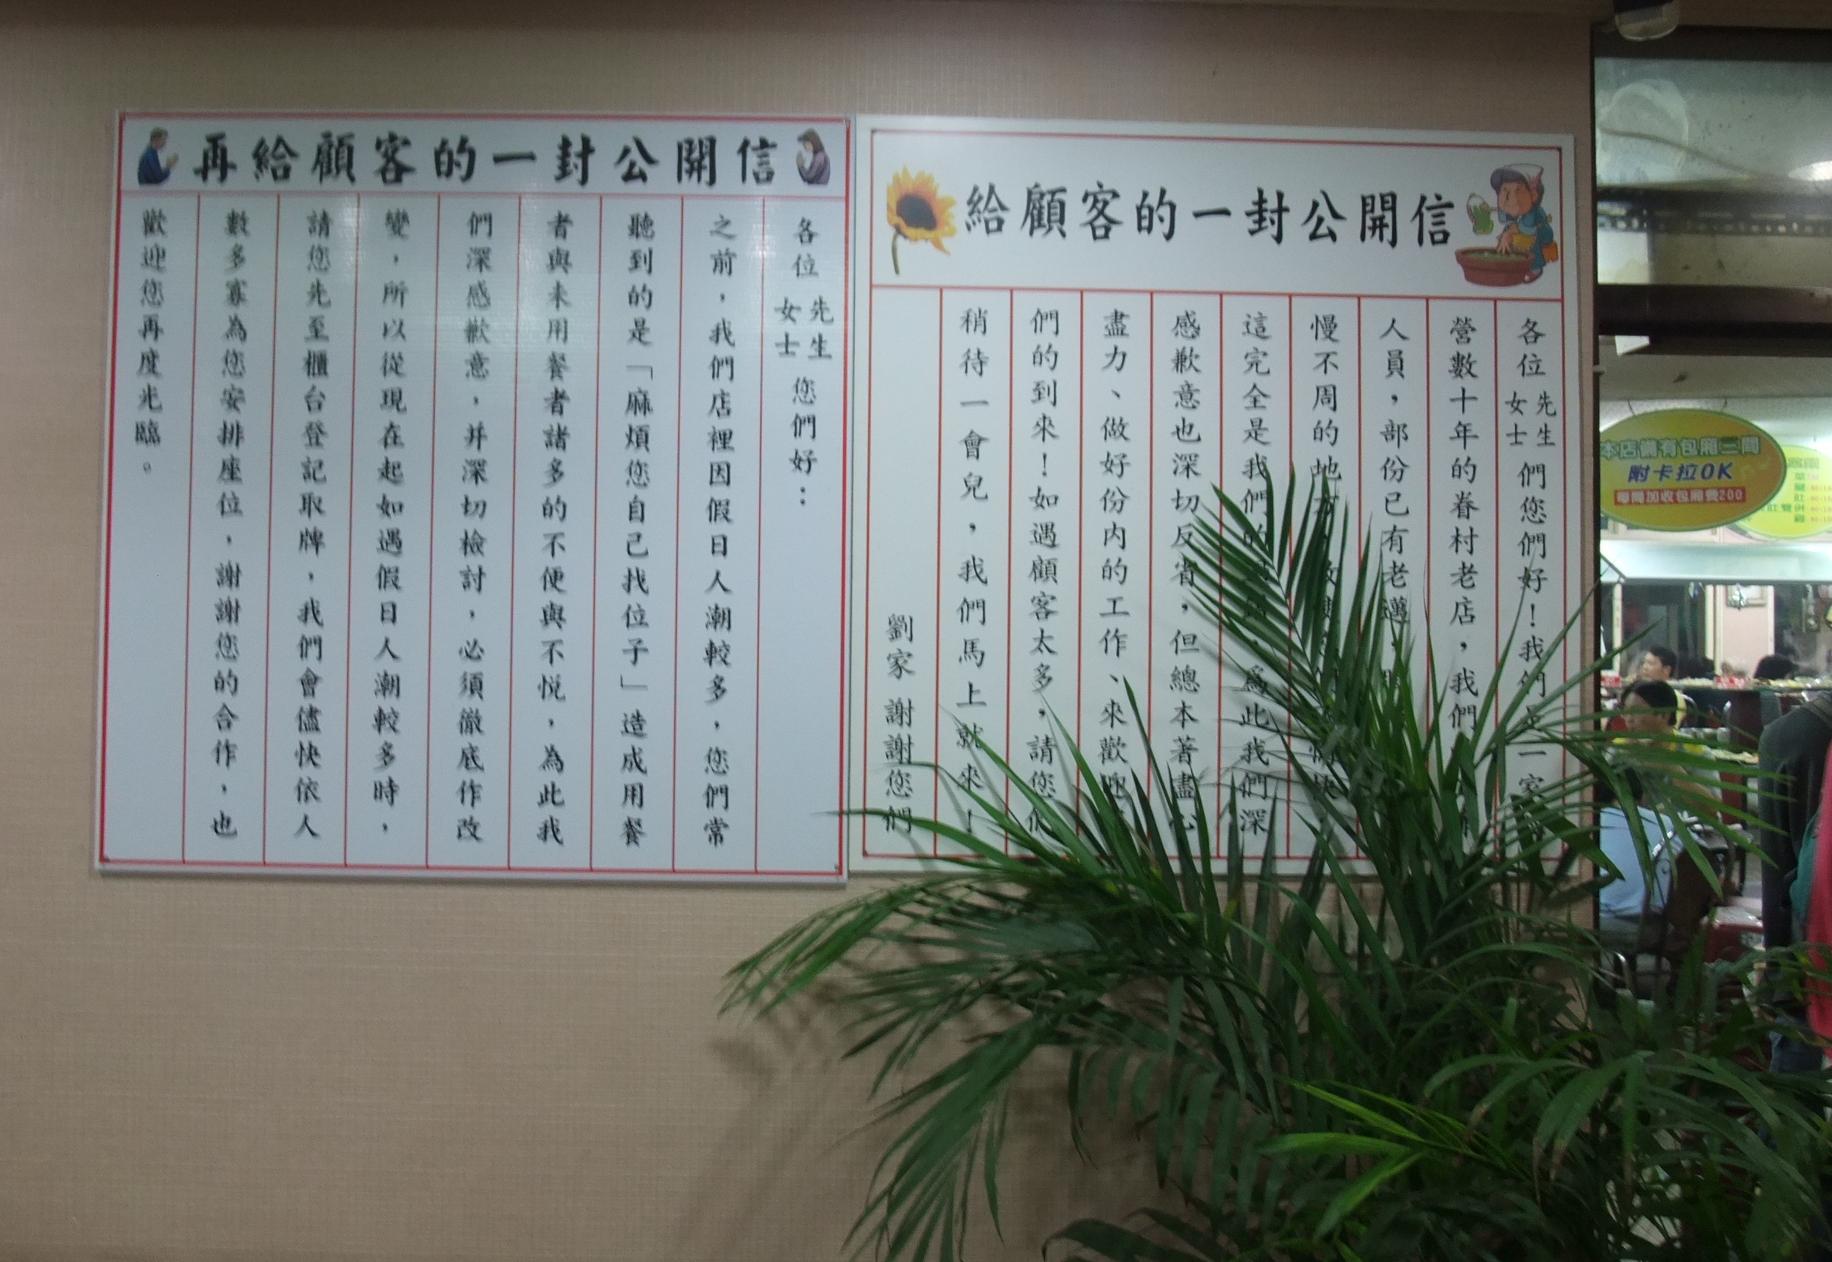 給顧客的一封公開信
各位 先生 女士 們您們好！我們是一家
營數十年的眷村老店，我們
人員，部份已有老邁，
慢不周的地方
這完全是我們的 ，爲此我們深
感歉意也深切反省，但總本著盡心
盡力、做好份內的工作、來歡迎
們的到來！如遇顧客太多，請您們
稍待一會兒，我們馬上就來！
劉家 謝謝您們
再給顧客的一封公開信
各位 先生 女士 您們好：
之前，我們店裡因假日人潮較多，您們常
聽到的是「麻煩您自己找位子」造成用餐
者與未用餐者諸多的不便與不悅，為此我
們深感歉意，并深切檢討，必須徹底作改
變，所以從現在起如遇假日人潮較多時，
請您先至櫃台登記取牌，我們會儘快依人
數多寡為您安排座位，謝謝您的合作，也
歡迎您再度光臨。
本店備有包廂二間
附卡拉OK
每間加收包廂費200